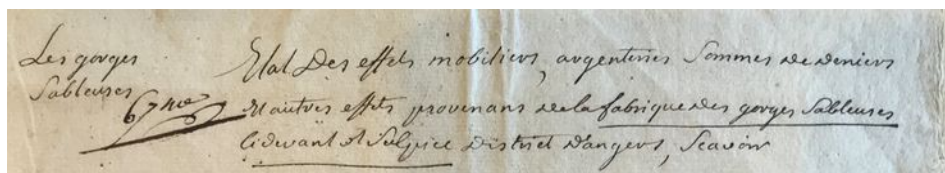 Les gorges
Sableuses
Etat Des effets mobiliers, argenteries Sommes de deniers
Et autres effets provenans de la fabrique des gorges Sableuses
Cidevant St Sulpice District d'angers, Scavoir